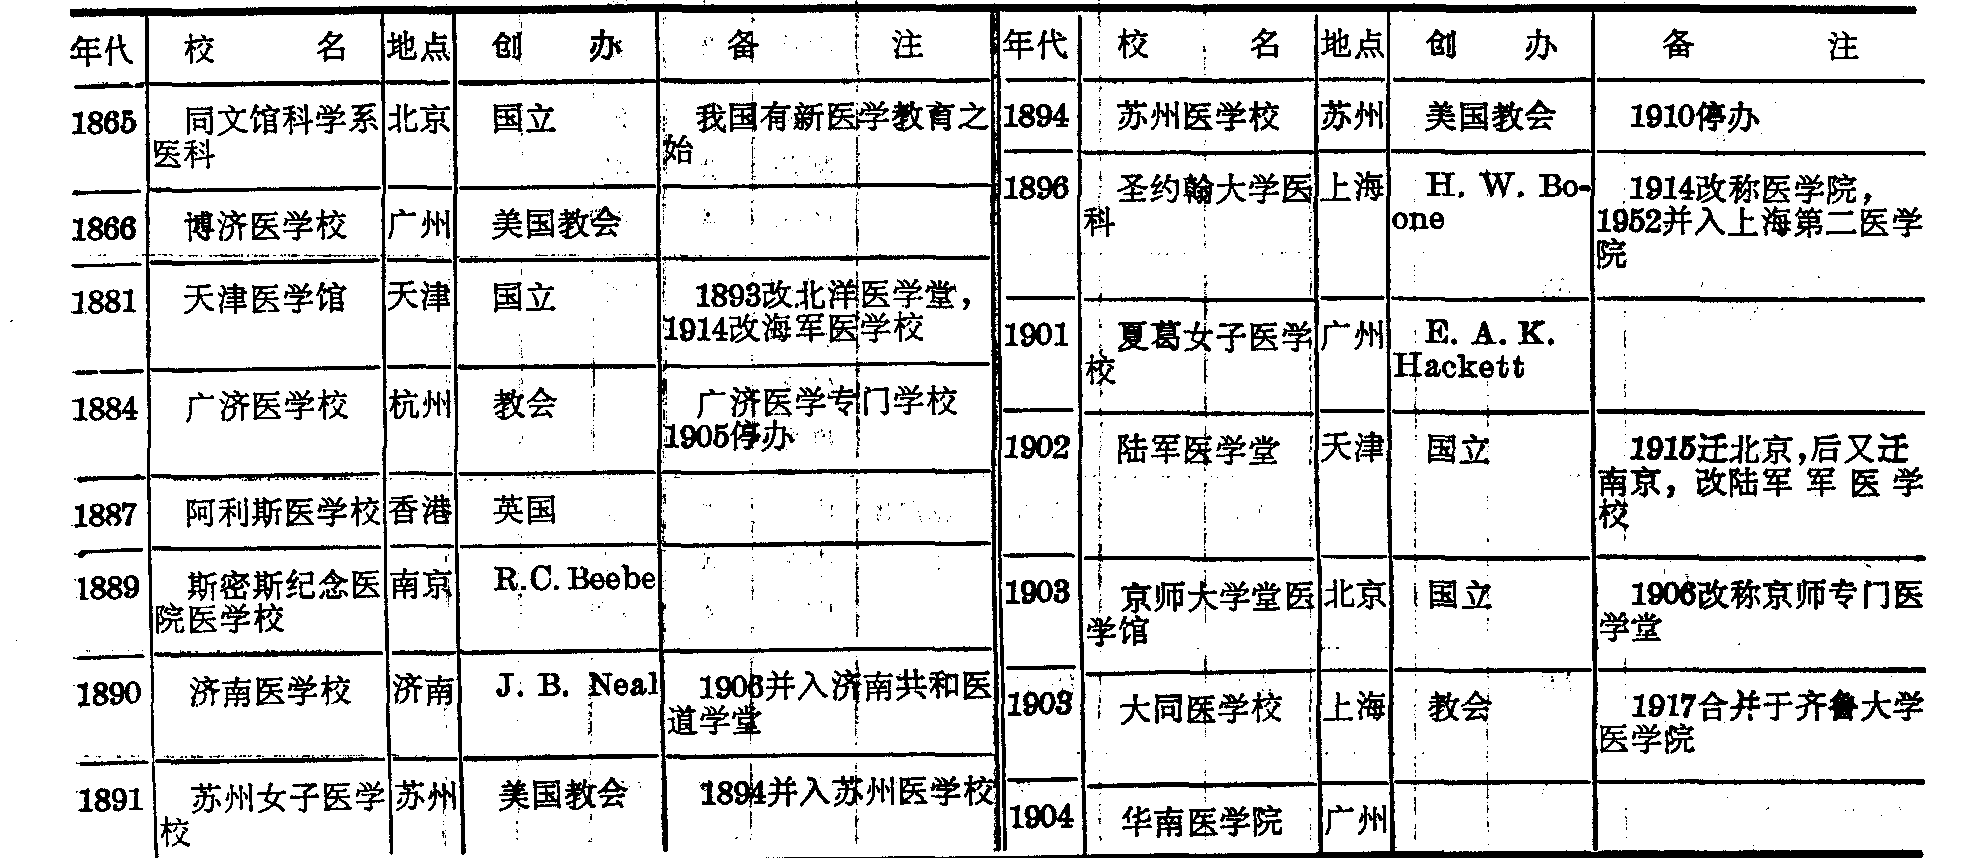 年代 校名 地点 创办 备注
1865 同文馆科学系 北京 国立 我国有新医学教育之
医科 始
1866 博济医学校 广州 美国教会
1881 天津医学馆 天津 国立 1893改北洋医学堂，
1914改海军医学校
1884 广济医学校 杭州 教会 广济医学专门学校
1905停办
1887 阿利斯医学校 香港 英国
1889 斯密斯纪念医 南京 R.C.Beebe
院医学校
1890 济南医学校 济南 J. B. Neal 1906并入济南共和医
道学堂
1891 苏州女子医学 苏州 美国教会 1894并入苏州医学校
校
年代 校名 地点 创办 备注
1894 苏州医学校 苏州 美国教会 1910停办
1896 圣约翰大学医 上海 H. W. Bo- 1914改称医学院，
科 one 1952并入上海第二医学
院
1901 夏葛女子医学 广州 E. A. K.
校 Hackett
1902 陆军医学堂 天津 国立 1915迁北京，后又迁
南京，改陆军军医学
校
1903 京师大学堂医 北京 国立 1906改称京师专门医
学馆 学堂
1903 大同医学校 上海 教会 1917合并于齐鲁大学
医学院
1904 华南医学院 广州